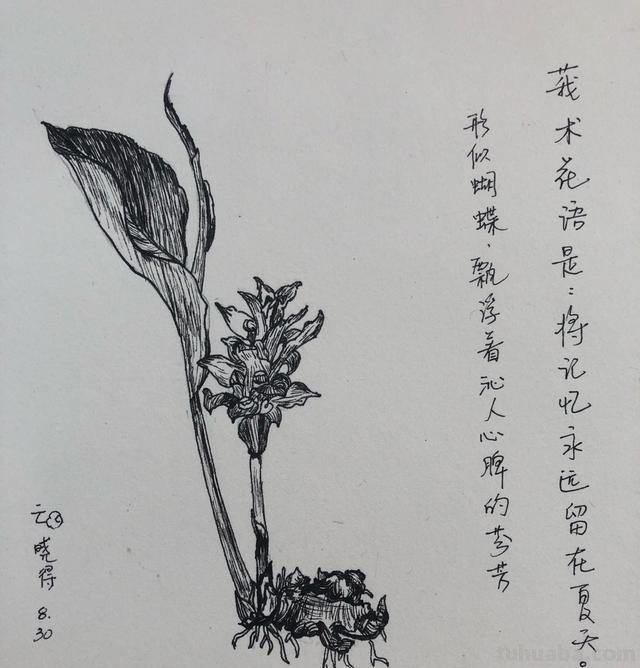 莪术花语是：将记忆永远留在夏天。
形似蝴蝶，飘浮着沁人心脾的芬芳
晓得
8.30
tuhuaba.com